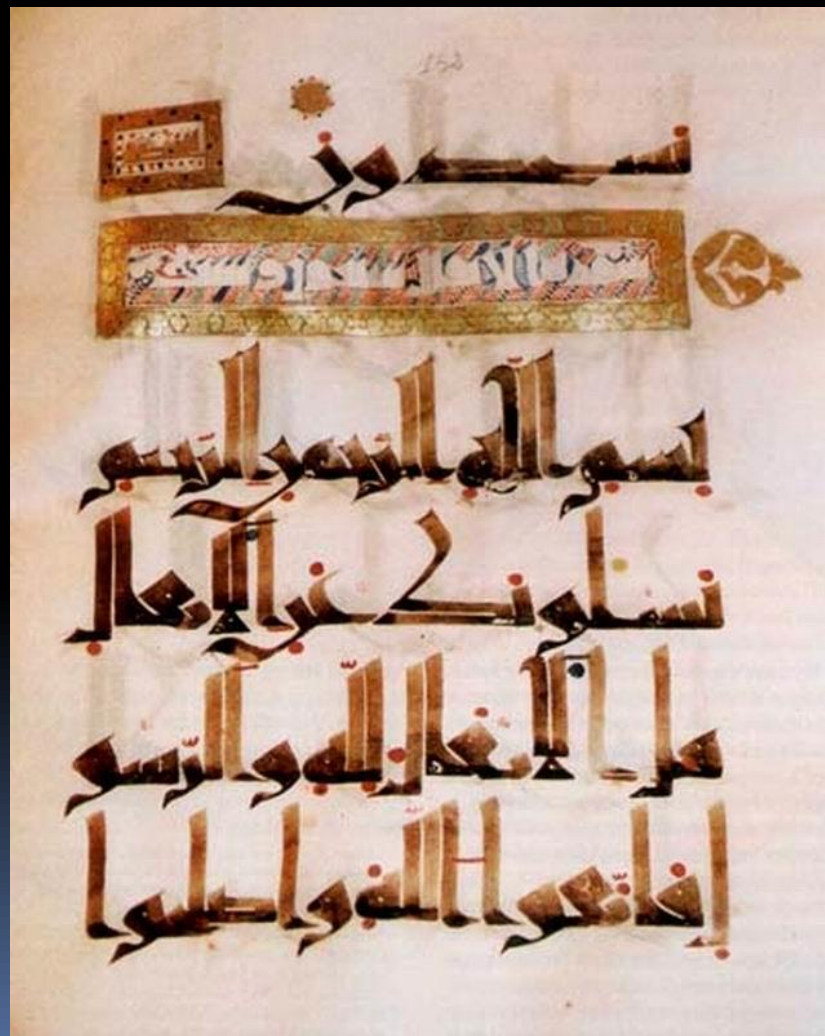 يسجدون
سورة الانفال
بسم الله الرحمن الرحيم
يسلونك عن الانفال
قل الانفال لله والرسو
ل فاتقوا الله واصلحوا